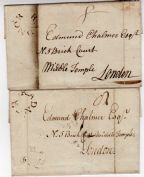 Edmund Chalmer Esqr
N. 5 Brick Court
Middle Temple
London
Edmund Chalmer Esqr.
N. 5 Brick Court Middle Temple
London